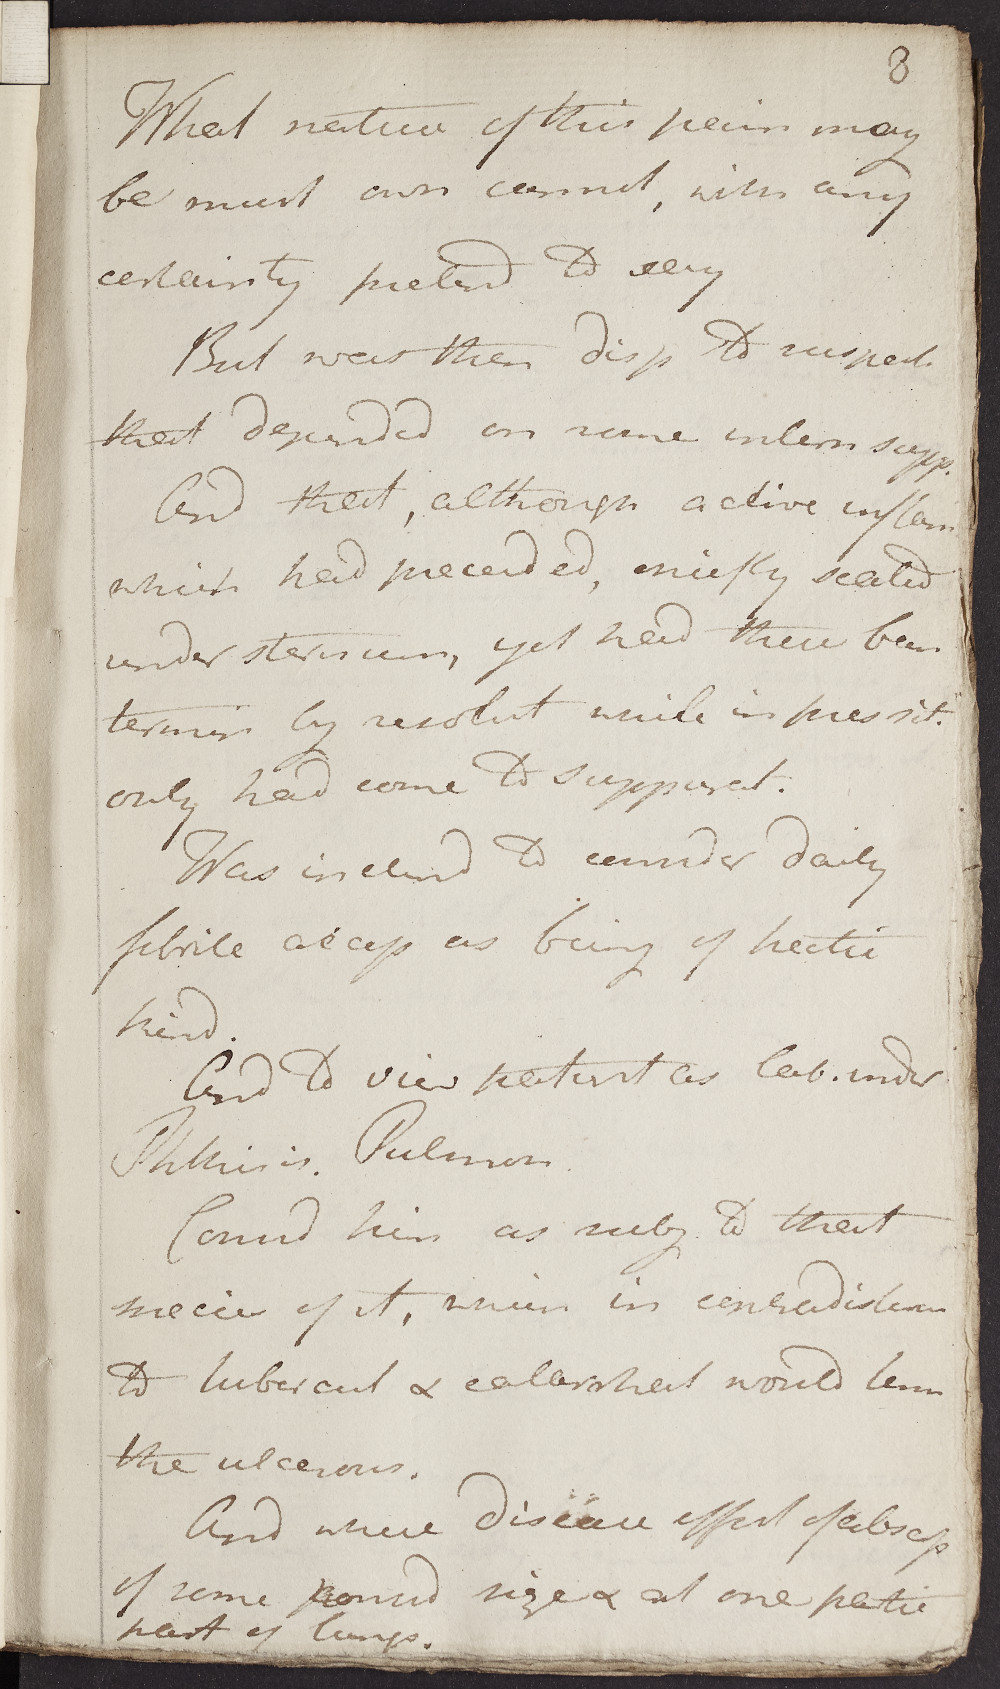 8
What nature of this pain may
be must own cannot, with any
certainty pretend to say
But was then disp to suspect
that depended on some intern supp.
And that, although active inflam
which had preceded, chiefly seated
under sternum, yet had there been
termin by resolut while in pres sit.
only had come to suppurat.
Was inclind to consider daily
febrile access as being of hectic
kind.
And to view patient as lab. under
Phthisis. Pulmon.
Consid him as subj. to that
specie of it, which in contradistinn
to tubercul & catarrhal would term
the ulcerous.
And where disease effect of abscess
of some consid size & at one partic
part of lungs.